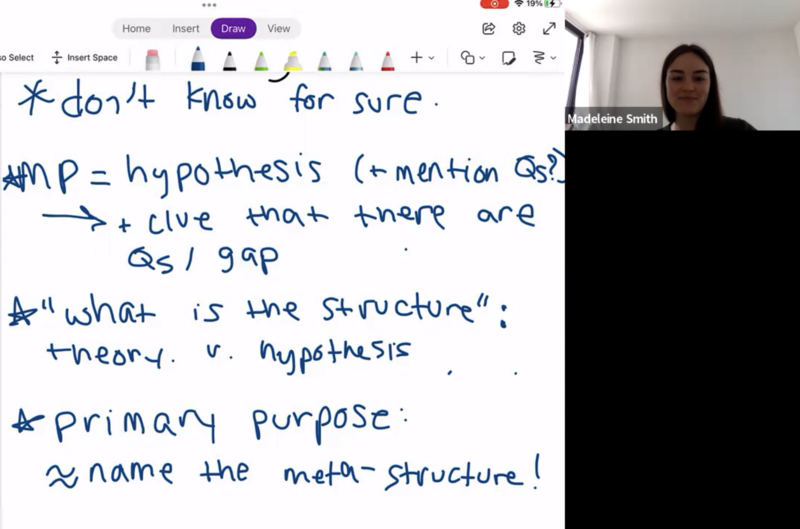 19%
Home Insert Draw View
so Select Insert Space
*don't know for sure.
Madeleine Smith
☆MP = hypothesis (+ mention Qs?)
→ + clue that there are
Qs / gap
☆"what is the structure":
theory. v. hypothesis
☆ primary purpose:
≈ name the meta-structure!